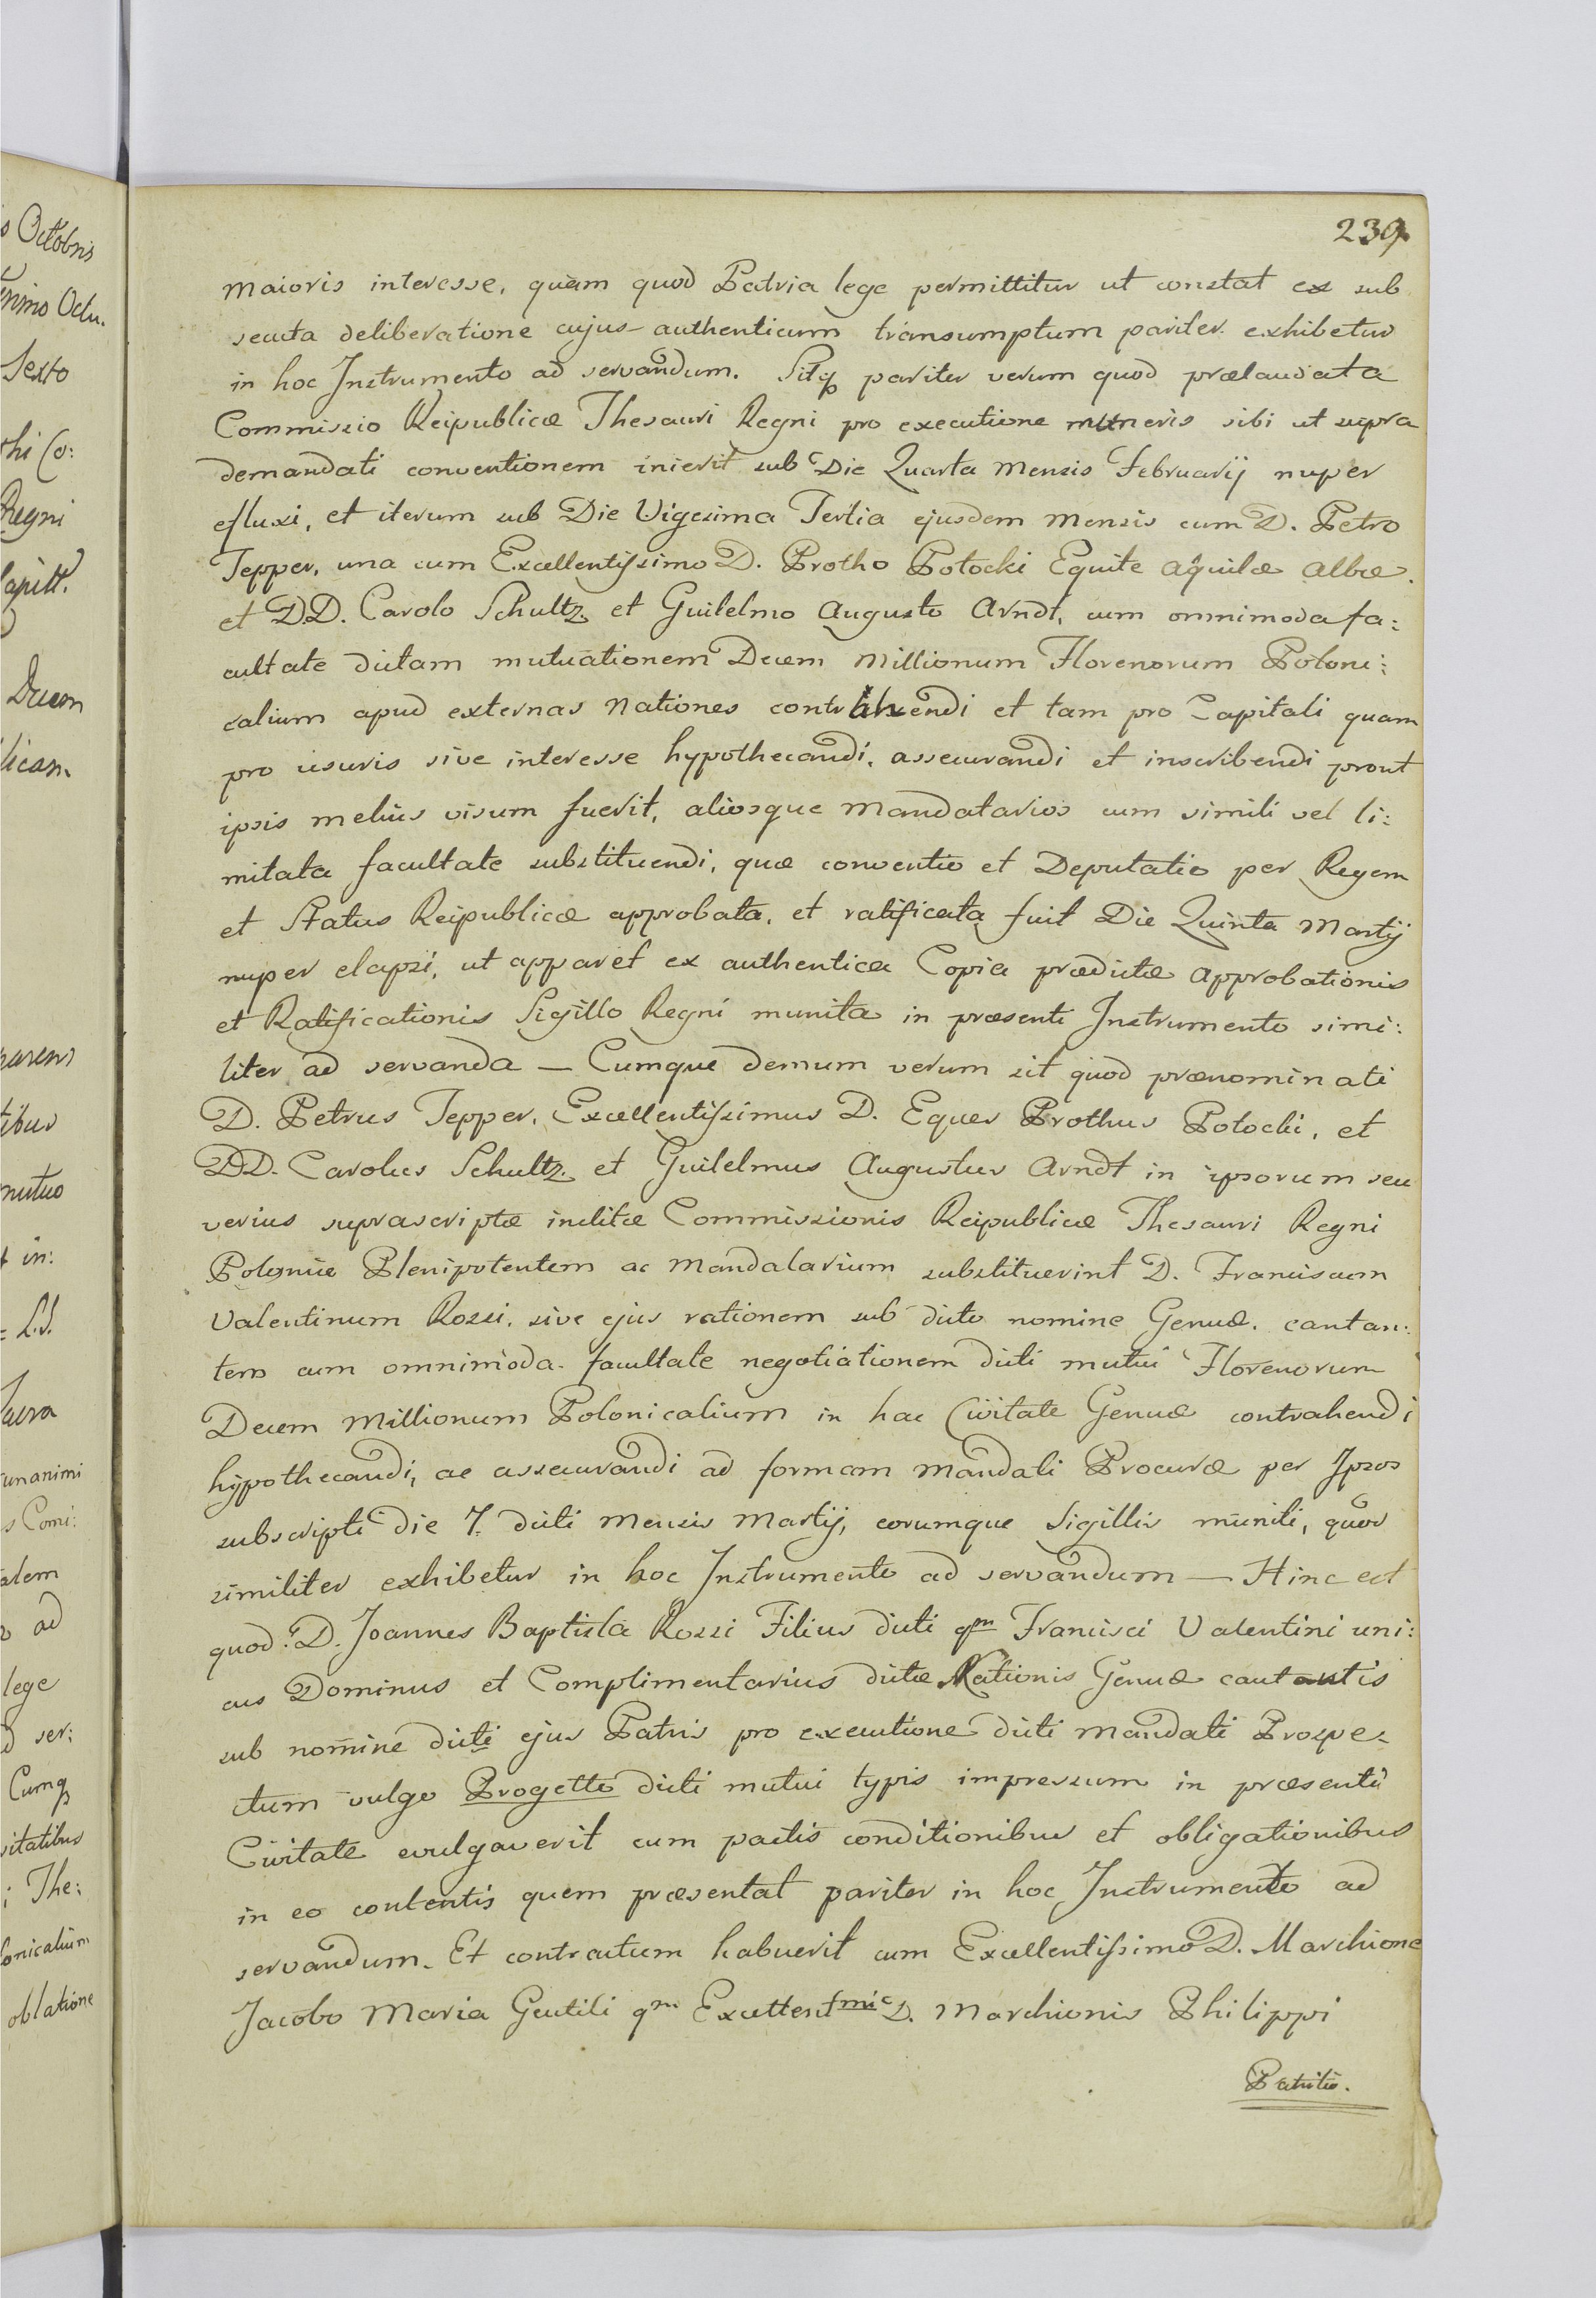 239
maioris interesse, quam quod Patria lege permittitur ut constat ex sub
secuta deliberatione cujus authenticum transumptum pariter exhibetur
in hoc Instrumento ad servandum. Sitq pariter verum quod prælaudata
Commissio Reipublicæ Thesauri Regni pro executione muneris sibi ut supra
demandati conventionem inierit sub Die Quarta Mensis Februarij nuper
efluxi, et iterum sub Die Vigesima Tertia ejusdem Mensis cum D. Petro
Tepper, una cum Excellentissimo D. Protho Potocki Equite Aquilæ Albæ.
et D.D. Carolo Schultz et Guilelmo Augusto Arndt, cum omnimoda fa:
cultate dictam mutuationem Decem Millionum Florenorum Poloni:
calium apud externas Nationes contrahendi et tam pro Capitali quam
pro usuris sive interesse hypothecandi, assecurandi et inscribendi prout
ipsis melius visum fuerit, aliosque Mandatarios cum simili vel li:
mitata facultate substituendi, quæ conventio et Deputatio per Regem
et Status Reipublicæ approbata, et ratificata fuit Die Quinta Martij
nuper elapsi, ut apparet ex authentica Copia prædictæ Approbationis
et Ratificationis Sigillo Regni munita in præsenti Instrumento simi:
liter ad servanda — Cumque demum verum sit quod prænominati
D. Petrus Tepper, Excellentissimus D. Eques Prothus Potocki, et
DD. Carolus Schultz et Guilelmus Augustus Arndt in ipsorum seu
verius suprascriptæ inclitæ Commissionis Reipublicæ Thesauri Regni
Poloniæ Plenipotentem ac Mandatarium substituerint D. Franciscum
Valentinum Rossi, sive ejus rationem sub dicto nomine Genuæ cantan:
tem cum omnimoda facultate negotiationem dicti mutui Florenorum
Decem Millionum Polonicalium in hac Civitate Genuæ contrahendi
hypothecandi, ac assecurandi ad formam Mandati Procuræ per Ipsos
subscripti die 7. dicti Mensis Martij, eorumque Sigillis muniti, quod
similiter exhibetur in hoc Instrumento ad servandum — Hinc est
quod D. Joannes Baptista Rossi Filius dicti qm Francisci Valentini uni:
cus Dominus et Complimentarius dictæ Rationis Genuæ cantantis
sub nomine dicti ejus Patris pro executione dicti Mandati Prospe-
ctum vulgo Progetto dicti mutui typis impressum in præsenti
Civitate evulgaverit cum pactis conditionibus et obligationibus
in eo contentis quem præsentat pariter in hoc Instrumento ad
servandum. Et contractum habuerit cum Excellentissimo D. Marchione
Jacobo Maria Gentili qm Excellentmi D. Marchionis Philippi
Patritio.